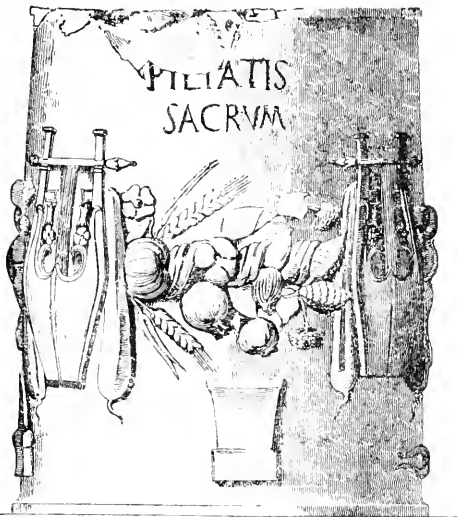 PIETATIS
SACRVM